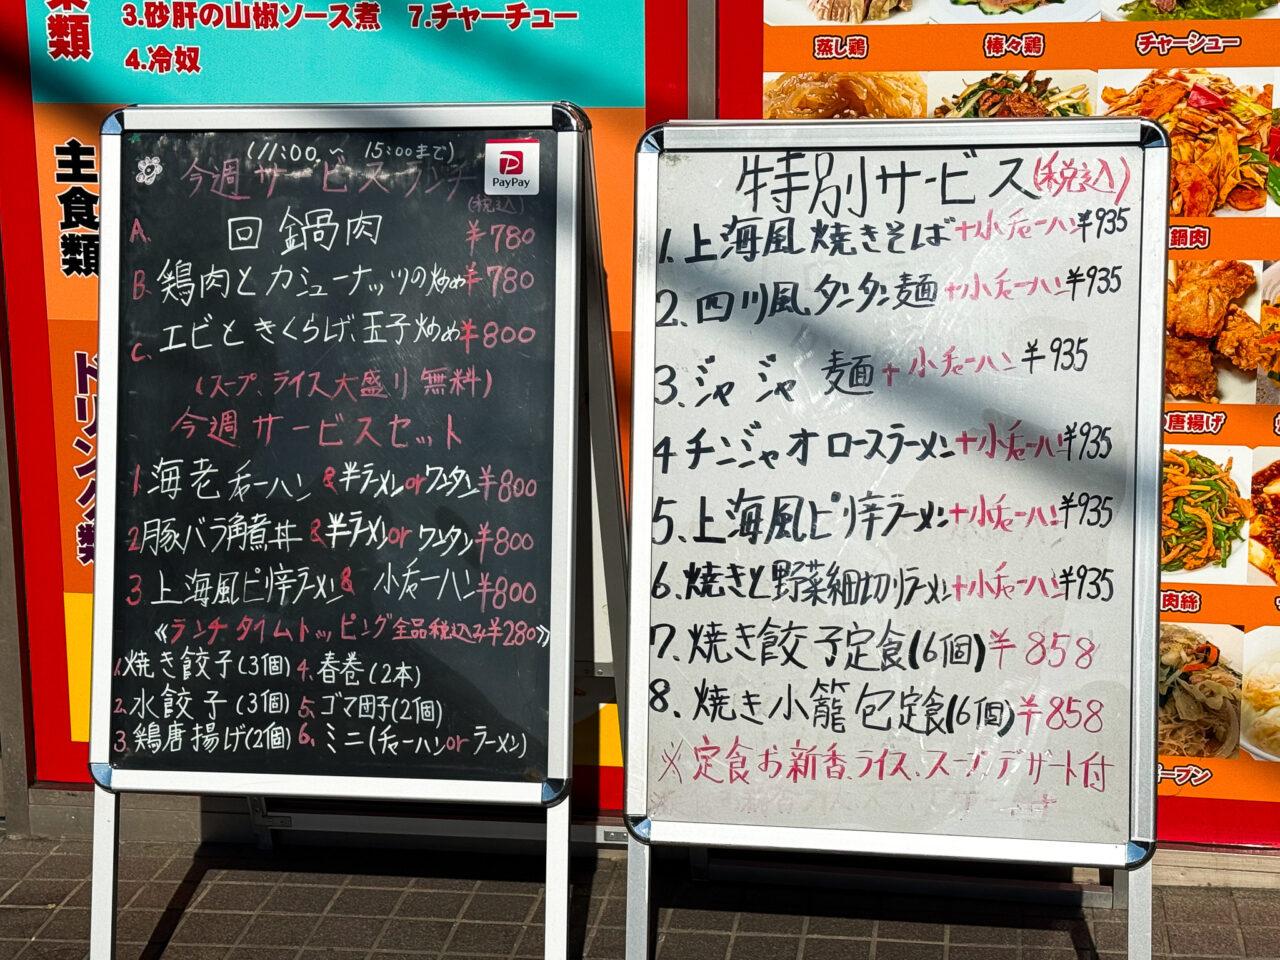 類
3.砂肝の山椒ソース煮 7.チャーチュー
4.冷奴
主食類
ドリンク類
(11:00 ~ 15:00まで)
今週サービスランチ
(税込)
PayPay
A. 回鍋肉 ¥780
B. 鶏肉とカシューナッツの炒め ¥780
C. エビときくらげ、玉子炒め ¥800
(スープ、ライス大盛り無料)
今週サービスセット
1 海老チャーハン & 半ラーメン or ワンタン ¥800
2 豚バラ角煮丼 & 半ラーメン or ワンタン ¥800
3 上海風ピリ辛ラーメン & 小チャーハン ¥800
《ランチタイムトッピング全品税込み¥280》
1. 焼き餃子(3個) 4. 春巻(2本)
2. 水餃子(3個) 5. ゴマ団子(2個)
3. 鶏唐揚げ(2個) 6. ミニ(チャーハン or ラーメン)
特別サービス(税込)
1. 上海風焼きそば+小チャーハン ¥935
2. 四川風タンタン麺+小チャーハン ¥935
3. ジャジャ麺+小チャーハン ¥935
4 チンジャオロースラーメン+小チャーハン ¥935
5. 上海風ピリ辛ラーメン+小チャーハン ¥935
6. 焼きと野菜細切りラーメン+小チャーハン ¥935
7. 焼き餃子定食(6個) ¥858
8. 焼き小籠包定食(6個) ¥858
※定食お新香、ライス、スープ、デザート付
蒸し鶏
棒々鶏
チャーシュー
鍋肉
唐揚げ
肉絲